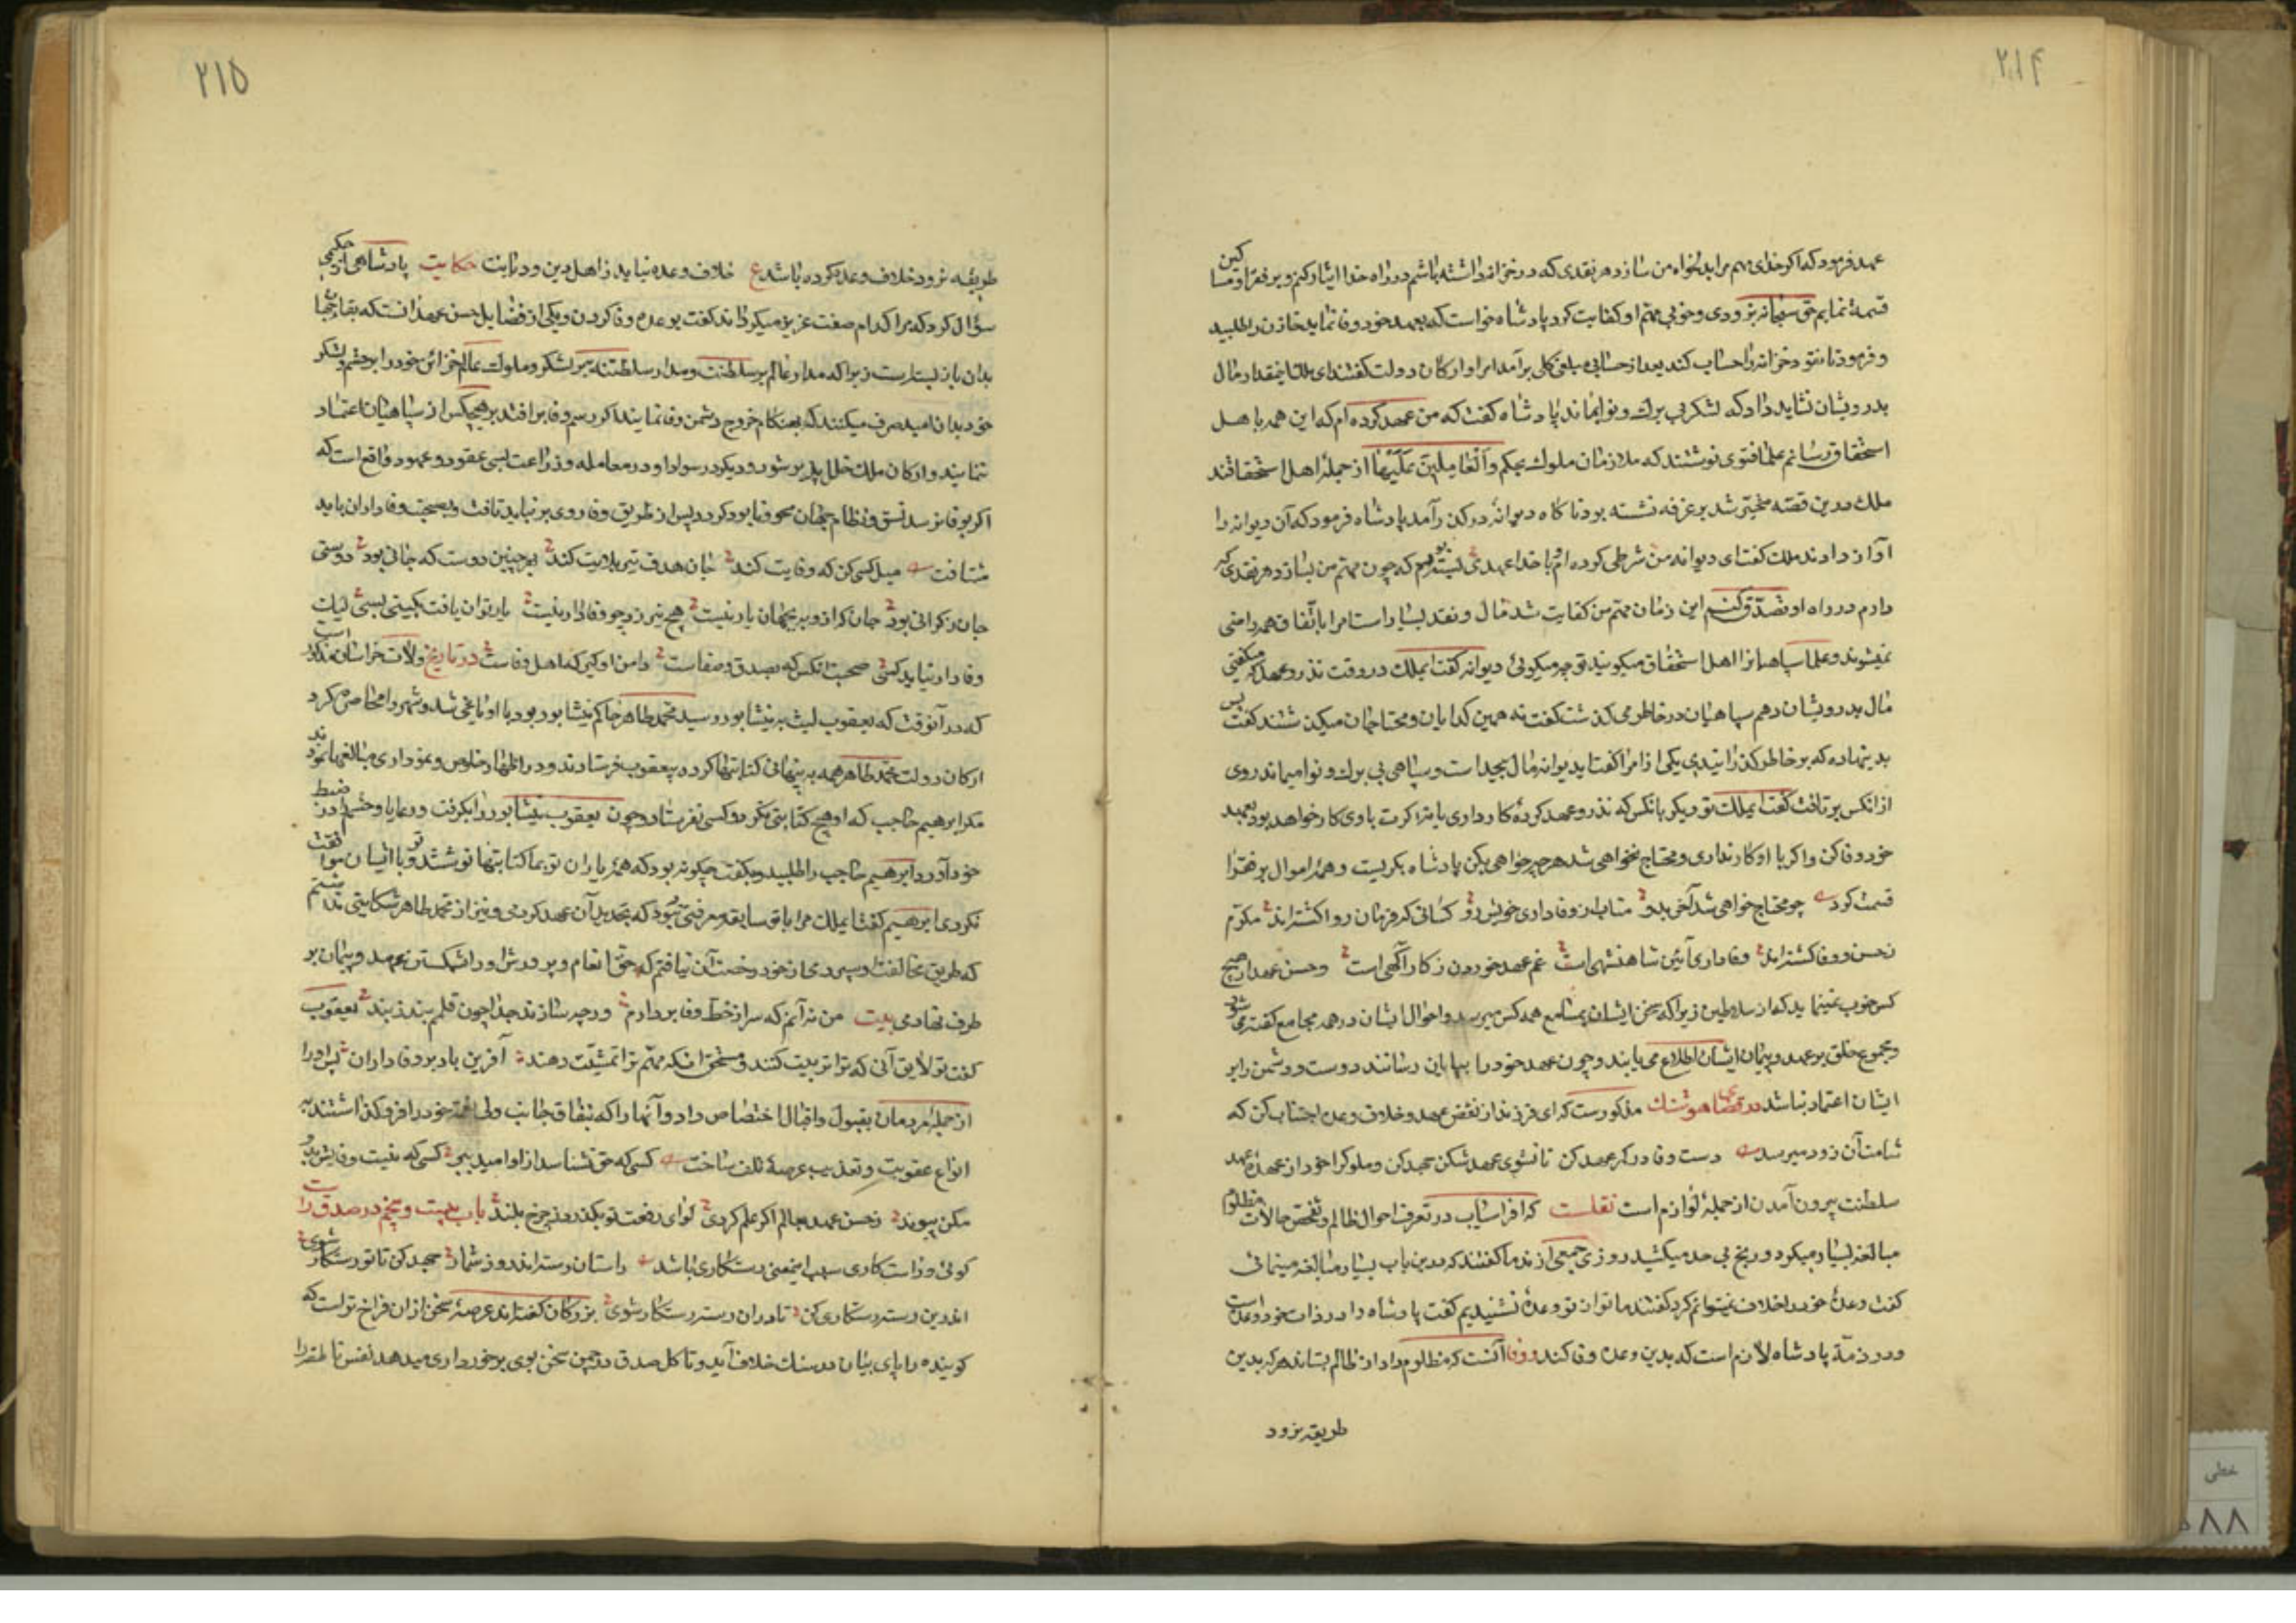 ۲۱۴
عهد فرمود که اگر خدای مهم مرا بدلخواه من سازد هر نقدی که در خزانه داشته باشم در راه خدا ایثار کنم و بر فقرا و مساکین
قسمة نمایم حق سبحانه بزودی و خوبی مهم او کفایت کرد پادشاه خواست که بعهد خود وفا نماید خازن را طلبید
و فرمود تا نقود خزانه را حساب کند بعد از حساب مبلغی کلی برآمد امرا و ارکان دولت گفتند ای ملک اینمقدار مال
بدرویشان نشاید داد که لشکر بی برک و نوا بماند پادشاه کفت که من عهد کرده ام که این همه باهل
استحقاق رسانم علما فتوی نوشتند که ملازمان ملوک بحکم والعاملین علیها از جمله اهل استحقاقند
ملک درین قصه متحیر شد بر غرفه نشسته بود ناکاه دیوانه در کذر آمد پادشاه فرمود که آن دیوانه را
آواز دادند ملک کفت ای دیوانه من شرطی کرده ام و با خدا عهدی بسته بودم که چون مهم من بسازد هر نقدی که
دارم در راه او تصدق کنم این زمان مهم من کفایت شد مال و نقد بسیار است امرا باتفاق همه راضی
نمیشوند و علما سپاهیانرا اهل استحقاق میکویند تو چه میکوئی دیوانه کفت ایملک در وقت نذر و عهد که میکفتی
مال بدرویشان دهم سپاهیان در خاطر می کذشت کفت نه همین کدایان و محتاجان میکذشتند کفت پس
بدینها ده که بر خاطر کذرانیدی یکی از امرا کفت ایدیوانه مال بیحد است و سپاهی بی برک و نوا میماند روی
از انکس بر تافت کفت ایملک تو دیکر بانکس که نذر و عهد کرده کار داری یا نه اکرت با وی کار خواهد بود بعهد
خود وفا کن و اکر با او کار نداری و محتاج نخواهی شد هر چه خواهی بکن پادشاه بکریست و همه اموال بر فقرا
قسمت کرد چو محتاج خواهی شد آخر بدو متاب از وفاداری خویش رو کسانی که فرمان روا کشته اند مکرم
ز حسن وفا کشته اند وفاداری آئین شاهنشهی است غم عهد خوردن ز کار آکهی است و حسن عهد از هیچ
کس خوب نمینماید که از سلاطین زیرا که سخن ایشان بمسامع همه کس میرسد و احوال ایشان در همه مجامع کفته می شود
و مجموع خلق بر عهد و پیمان ایشان اطلاع می یابند و چون عهد خود را بپایان رسانند دوست و دشمن را بر
ایشان اعتماد باشد در وصایای هوشنک مذکورست که ای فرزند از نقض عهد و خلاف وعده اجتناب کن که
شامت آن زود میرسد دست وفا در کمر عهد کن تا نشوی عهد شکن جهد کن و ملوک را خود از عهده عهد
سلطنت بیرون آمدن از جمله لوازم است نقلست که افراسیاب در تعرف احوال ظالم و تفحص حالات مظلوم
مبالغه بسیار میکرد و رنج بی حد میکشید روزی جمعی از ندما کفتند که درین باب بسیار مبالغه مینمائی
کفت وعدهٔ خود را خلاف نمیتوانم کرد کفتند ما توان تو وعده نشنیدیم کفت پادشاه داد در ذات خود وعده است
و در ذمهٔ پادشاه لازم است که بدین وعده وفا کند و وفا آنست که مظلوم را داد از ظالم بستاند هر که بدین
طریقه نرود
۲۱۵
طریقه نرود خلاف وعده کرده باشد ع خلاف وعده نیاید ز اهل دین و دیانت حکایت پادشاهی از حکیمی
سؤال کرد که مرا کدام صفت عزیز میکرداند کفت بوعده وفا کردن و یکی از فضایل حسن عهد آنست که بقاء جهان
بدان باز بسته است زیرا که مدار عالم بر سلطنت و مدار سلطنت بر لشکر و ملوک عالم خزائن خود را بر حشم و لشکر
خود بدان امید صرف میکنند که بهنکام خروج دشمن وفا نمایند اکر رسم وفا بر افتد بر هیچکس از سپاهیان اعتماد
ننمایند و ارکان ملک خلل پذیر شود و دیکر در سوادا و در معامله و زراعت بسی عقود و عهود واقع است که
اکر بوفا نرسد نسق و نظام جهان محو و نابود کردد پس از طریق وفا روی بر نباید تافت و بصحبت وفاداران باید
شتافت میل کسی کن که وفایت کند جان هدف تیر بلایت کند بر چنین دوست که جانی بود دوستی
جان ز کرانی بود جان کر ازو به بجهان یار نیست هیچ نیرزد چو وفادار نیست یار توان یافت بکیتی بسی لیک
وفادار نیاید کسی صحبت انکس که بصدق و صفاست دامن او کیر که اهل وفاست در تاریخ ولات خراسان مذکور است
که در آنوقت که یعقوب لیث بر نیشابور رسید محمد طاهر حاکم نیشابور بود با او یاغی شد و شهر را محاصره کرد
ارکان دولت محمد طاهر همه بپنهانی کتابتها کرده بیعقوب فرستادند و در اظهار خلوص و هواداری مبالغها نمودند
مکر ابرهیم حاجب که او هیچ کتابتی نکرد و کسی نفرستاد و چون یعقوب نیشابور را بکرفت و رعایا و حشم را در ضبط
خود آورد ابرهیم حاجب را طلبید و بکفت چکونه بود که همه یاران تو بما کتابتها نوشتند و تو با ایشان موافقت
نکردی ابرهیم کفت ایملک مرا با تو سابقه معرفتی نبود که بتجدید آن عهد کردمی و نیز از محمد طاهر شکایتی نداشتم
که طریق مخالفت او سپردمی از خود رخصت آن نیافتم که حق انعام و پرورش او را شکستن عهد و پیمان بر
طرف نهادمی بیت من نه آنم که سر از خط وفا بردارم ورچه سازند جدا چون قلمم بند ز بند یعقوب
کفت تو لایق آنی که ترا تربیت کنند و مستحق انکه مهم ترا تمشیت دهند آفرین باد بر وفاداران پس او را
از جمله مردمان بقبول و اقبال اختصاص داد و آنها را که بنفاق جانب ولی نعمة خود را فرو کذاشتند به
انواع عقوبت و تعذیب عرصهٔ تلف ساخت کسی که حق نشناسد ازو امید ببر کسی که نیست وفایش بدو
مکن پیوند ز حسن عهد بعالم اکر علم کردی لوای رفعت تو بکذرد ز چرخ بلند باب بیست و پنجم در صدق راست
کوئی و راست کاری سبب ایمنی و رستکاری باشد راستان رسته اند روز شمار جهد کن تا تو رستکار شوی
اندرین رسته رستکاری کن تا در ان رسته رستکار شوی بزرکان کفته اند عرصهٔ سخن از ان فراخ تر است که
کوینده را پای بیان در سنک خلاف آید و تا کل صدق در چمن سخن بوی برخورداری میدهد نفس ناطقه را
خطی